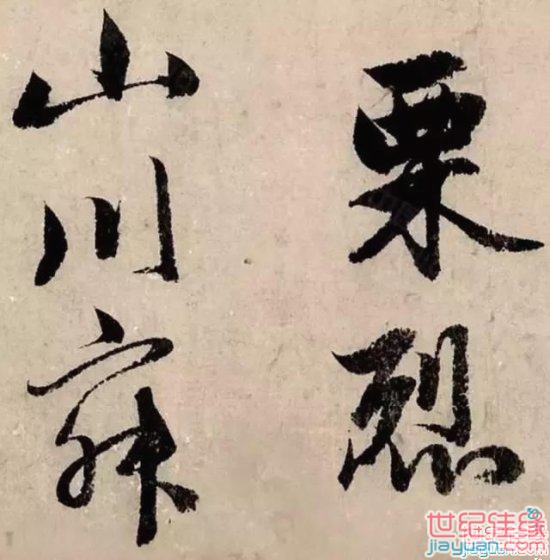 栗烈
山川寂
世纪佳缘
jiayuan.com